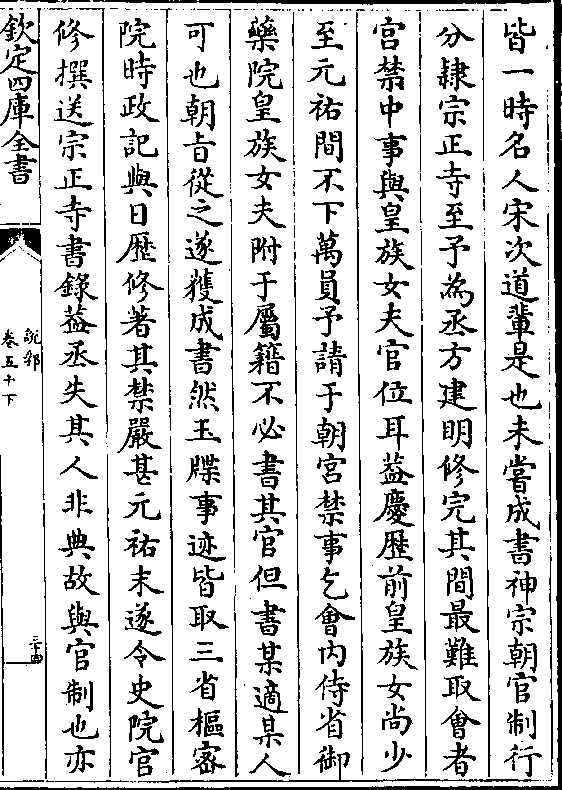 皆一時名人宋次道輩是也未嘗成書神宗朝官制行
分隸宗正寺至予為丞方建明修完其間最難取會者
宮禁中事與皇族女夫官位耳葢慶歴前皇族女尚少
至元祐間不下萬員予請于朝宮禁事乞會内侍省御
藥院皇族女夫附于屬籍不必書其官但書某適某人
可也朝㫖從之遂獲成書然玉牒事迹皆取三省樞密
院時政記與日歴修著其禁嚴甚元祐末遂令史院官
修撰送宗正寺書錄葢丞失其人非典故與官制也亦
欽定四庫全書
説郛
卷五十下
三十四